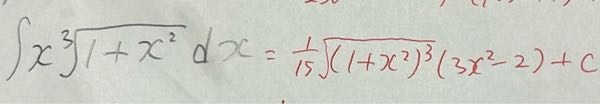 ∫x³√(1+x²) dx = 1/15 √((1+x²)³) (3x²-2) + C